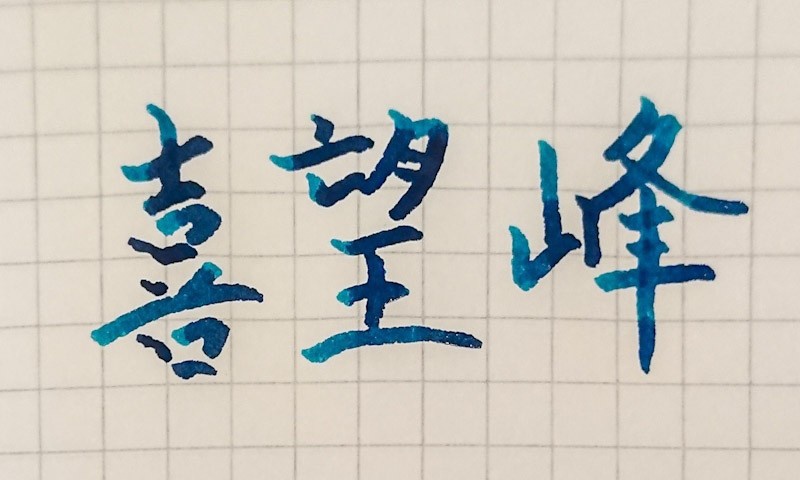 喜望峰